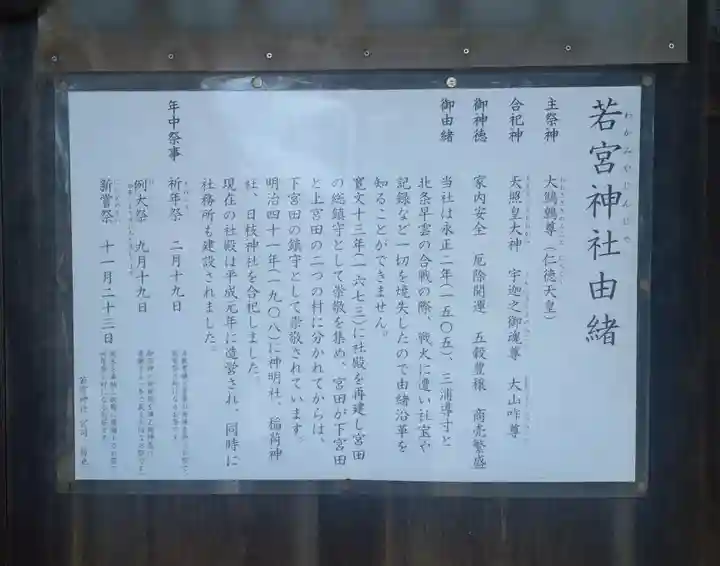 若宮神社由緒
わかみやじんじゃ
主祭神 大鷦鷯尊(仁徳天皇)
合祀神 天照皇大神 宇迦之御魂尊 大山咋尊
御神徳 家内安全 厄除開運 五穀豊穣 商売繁盛
御由緒 当社は永正二年(一五〇五)、三浦導寸と
北条早雲の合戦の際、戦火に遭い社宝や
記録など一切を境失したので由緒沿革を
知ることができません。
寛文十三年(一六七三)に社殿を再建し宮田
の総鎮守として崇敬を集め、宮田が下宮田
と上宮田の二つの村に分かれてからは、
下宮田の鎮守として崇敬されています。
明治四十一年(一九〇八)に神明社、稲荷神
社、日枝神社を合祀しました。
現在の社殿は平成元年に造営され、同時に
社務所も建設されました。
年中祭事 祈年祭 二月十九日
例大祭 九月十九日
新嘗祭 十一月二十三日